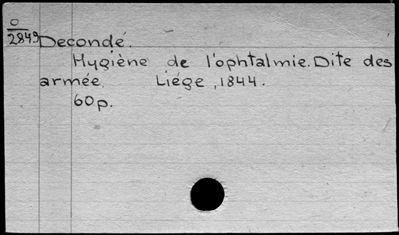 O
2849
Decondé.
Hygiène de l'ophtalmie. Dite des
armée. Liége, 1844.
60p.